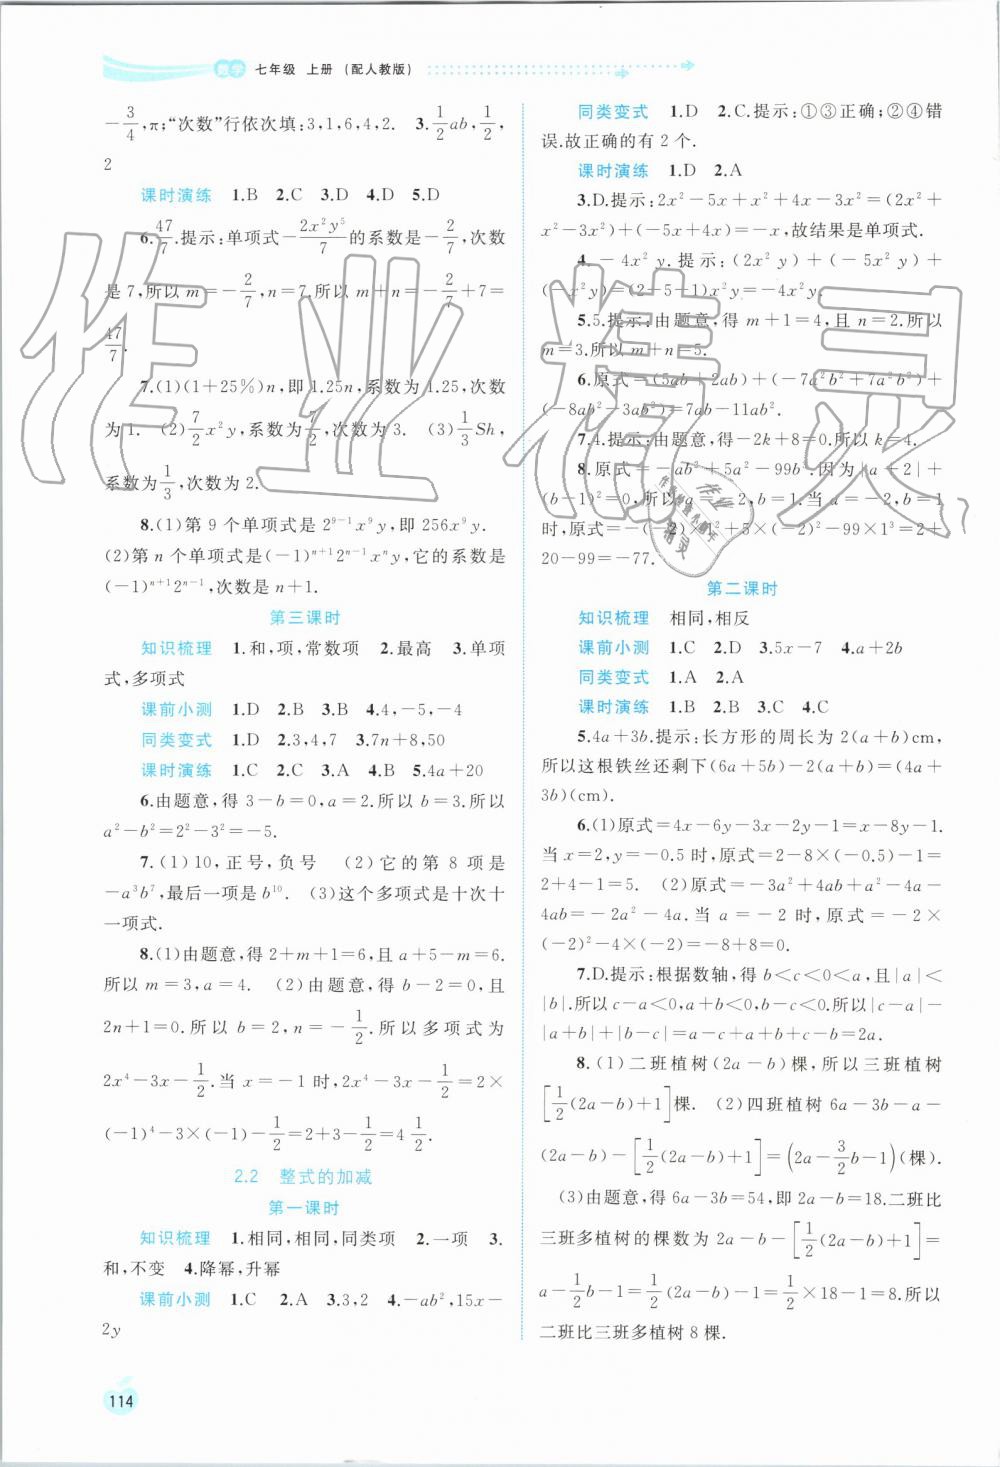 数学 七年级 上册 (配人教版)
-3/4,π;“次数”行依次填:3,1,6,4,2. 3.1/2ab,1/2,
2
课时演练 1.B 2.C 3.D 4.D 5.D
6.47/7.提示:单项式-2x²y⁵/7的系数是-2/7,次数
是7,所以m=-2/7,n=7.所以m+n=-2/7+7=
47/7.
7.(1)(1+25%)n,即1.25n,系数为1.25,次数
为1. (2)7/2x²y,系数为7/2,次数为3. (3)1/3Sh,
系数为1/3,次数为2.
8.(1)第9个单项式是2⁹⁻¹x⁹y,即256x⁹y.
(2)第n个单项式是(-1)ⁿ⁺¹2ⁿ⁻¹xⁿy,它的系数是
(-1)ⁿ⁺¹2ⁿ⁻¹,次数是n+1.
第三课时
知识梳理 1.和,项,常数项 2.最高 3.单项
式,多项式
课前小测 1.D 2.B 3.B 4.4,-5,-4
同类变式 1.D 2.3,4,7 3.7n+8,50
课时演练 1.C 2.C 3.A 4.B 5.4a+20
6.由题意,得3-b=0,a=2.所以b=3.所以
a²-b²=2²-3²=-5.
7.(1)10,正号,负号 (2)它的第8项是
-a³b⁷,最后一项是b¹⁰. (3)这个多项式是十次十
一项式.
8.(1)由题意,得2+m+1=6,且a+5-m=6.
所以m=3,a=4. (2)由题意,得b-2=0,且
2n+1=0.所以b=2,n=-1/2.所以多项式为
2x⁴-3x-1/2.当x=-1时,2x⁴-3x-1/2=2×
(-1)⁴-3×(-1)-1/2=2+3-1/2=4 1/2.
2.2 整式的加减
第一课时
知识梳理 1.相同,相同,同类项 2.一项 3.
和,不变 4.降幂,升幂
课前小测 1.C 2.A 3.3,2 4.-ab²,15x-
2y
同类变式 1.D 2.C.提示:①③正确;②④错
误.故正确的有2个.
课时演练 1.D 2.A
3.D.提示:2x²-5x+x²+4x-3x²=(2x²+
x²-3x²)+(-5x+4x)=-x,故结果是单项式.
4.-4x²y.提示:(2x²y)+(-5x²y)+
(-x²y)=(2-5-1)x²y=-4x²y.
5.5.提示:由题意,得m+1=4,且n=2.所以
m=3.所以m+n=5.
6.原式=(5ab+2ab)+(-7a²b²+7a²b²)+
(-8ab²-3ab²)=7ab-11ab².
7.4.提示:由题意,得-2k+8=0.所以k=4.
8.原式=-ab²+5a²-99b².因为|a+2|+
(b-1)²=0,所以a=-2,b=1.当a=-2,b=1
时,原式=-(-2)×1²+5×(-2)²-99×1²=2+
20-99=-77.
第二课时
知识梳理 相同,相反
课前小测 1.C 2.D 3.5x-7 4.a+2b
同类变式 1.A 2.A
课时演练 1.B 2.B 3.C 4.C
5.4a+3b.提示:长方形的周长为2(a+b)cm,
所以这根铁丝还剩下(6a+5b)-2(a+b)=(4a+
3b)(cm).
6.(1)原式=4x-6y-3x-2y-1=x-8y-1.
当x=2,y=-0.5时,原式=2-8×(-0.5)-1=
2+4-1=5. (2)原式=-3a²+4ab+a²-4a-
4ab=-2a²-4a.当a=-2时,原式=-2×
(-2)²-4×(-2)=-8+8=0.
7.D.提示:根据数轴,得b<c<0<a,且|a|<
|b|.所以c-a<0,a+b<0,b-c<0.所以|c-a|-
|a+b|+|b-c|=a-c+a+b+c-b=2a.
8.(1)二班植树(2a-b)棵,所以三班植树
[1/2(2a-b)+1]棵. (2)四班植树6a-3b-a-
(2a-b)-[1/2(2a-b)+1]=(2a-3/2b-1)(棵).
(3)由题意,得6a-3b=54,即2a-b=18.二班比
三班多植树的棵数为2a-b-[1/2(2a-b)+1]=
a-1/2b-1=1/2(2a-b)-1=1/2×18-1=8.所以
二班比三班多植树8棵.
114
作业精灵